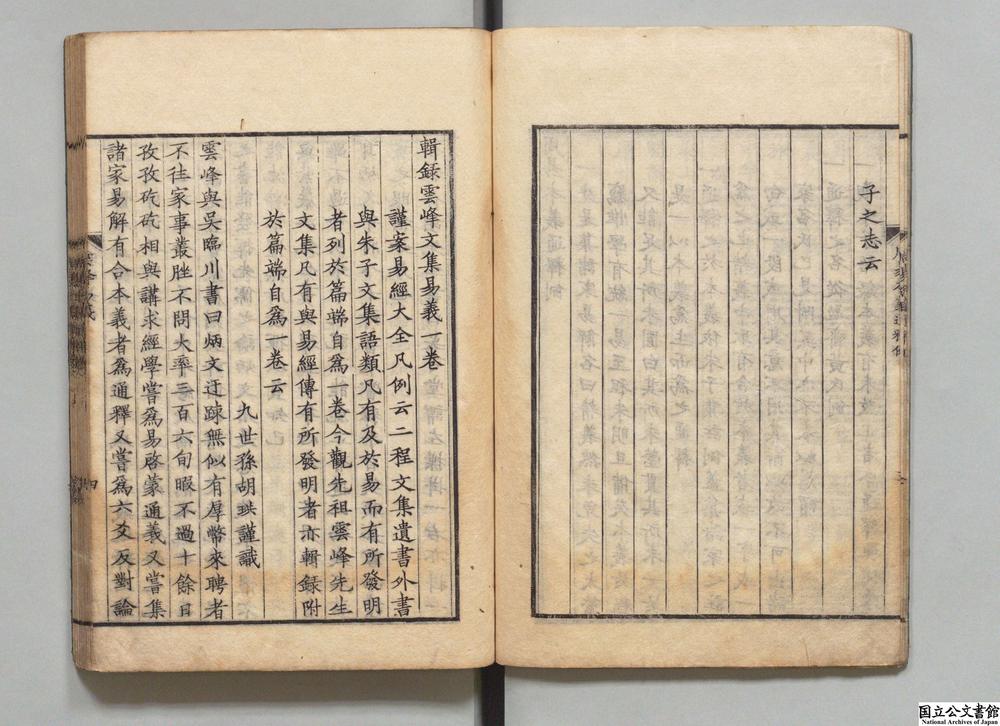 子之志云
輯録雲峰文集易義一卷
謹案易經大全凡例云二程文集遺書外書
與朱子文集語類凡有及於易而有所發明
者列於篇端自爲一卷今觀先祖雲峰先生
文集凡有與易經傳有所發明者亦輯録附
於篇端自爲一卷云
九世孫胡珙謹識
雲峰與吳臨川書曰炳文迂踈無似有厚幣來聘者
不徃家事叢脞不問大率三百六旬暇不過十餘日
孜孜矻矻相與講求經學嘗爲易啓蒙通義又嘗集
諸家易解有合本義者爲通釋又嘗爲六爻反對論
国立公文書館
National Archives of Japan